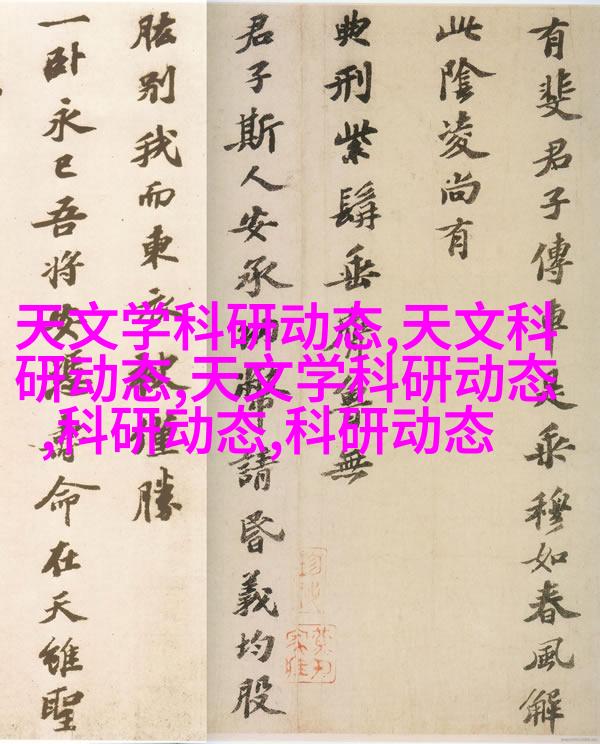 有斐君子傳車是乘穆如春風解
此陰凌尚有
典刑紫髯垂膺魯無
君子斯人安承納幣請昏義均股
肱别我而東衣袂僅勝
一卧永已吾將安憑壽命在天雖聖
天文学科研动态,天文科
研动态,天文学科研动态
,科研动态,科研动态